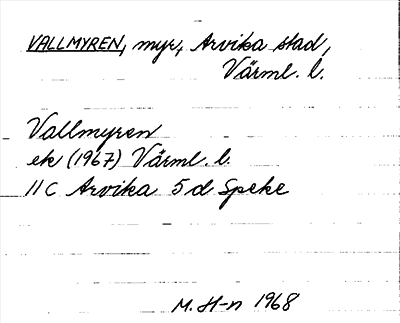 VALLMYREN, myr, Arvika stad,
Värml. l.
Vallmyren
ek (1967) Värml. l.
11 C Arvika 5 d Speke
M. H-n 1968